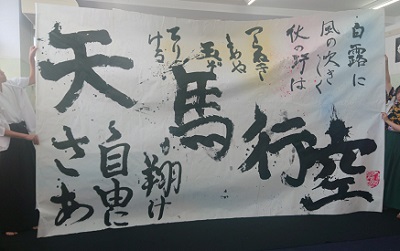 白露に
風の吹きしく
秋の野は
つらぬき
とめぬ
玉ぞ
ちり
ける
天馬行空
さあ
自由に
翔け